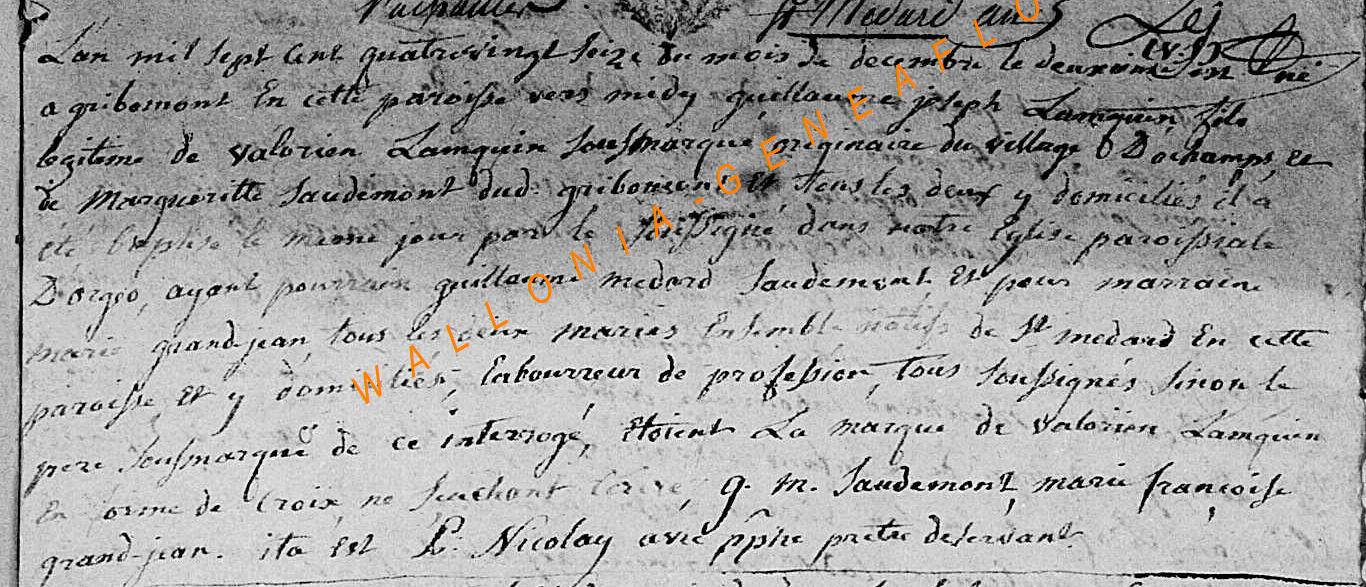 St Medard au 5
Lan mil sept cent quatrevingt seize du mois de decembre le deuxieme est né
a gribomont En cette paroisse vers midy guillaume joseph Lamquin fils
legiteme de valorien Lamquin sousmarqué originaire du village D'ochamps et
de Margueritte Saudemont dud. gribomont et tous les deux y domiciliés il a
été baptisé le meme jour par le soussigné dans notre Eglise paroissiale
D'orgeo, ayant pour parrain guillaume medard Saudemont Et pour marraine
marie grand-jean tous les deux mariés Ensemble natifs de St medard En cette
paroisse et y domiciliés, labourreur de profession, tous soussignés sinon le
pere sousmarqué de ce interrogé, étoient La marque de valorien Lamquin
En forme de croix ne sachant écrire, g. m. Saudemont, marie françoise
grand-jean. ita est L: Nicolay avec pphe pretre deservant.
WALLONIA.GENEAFLO